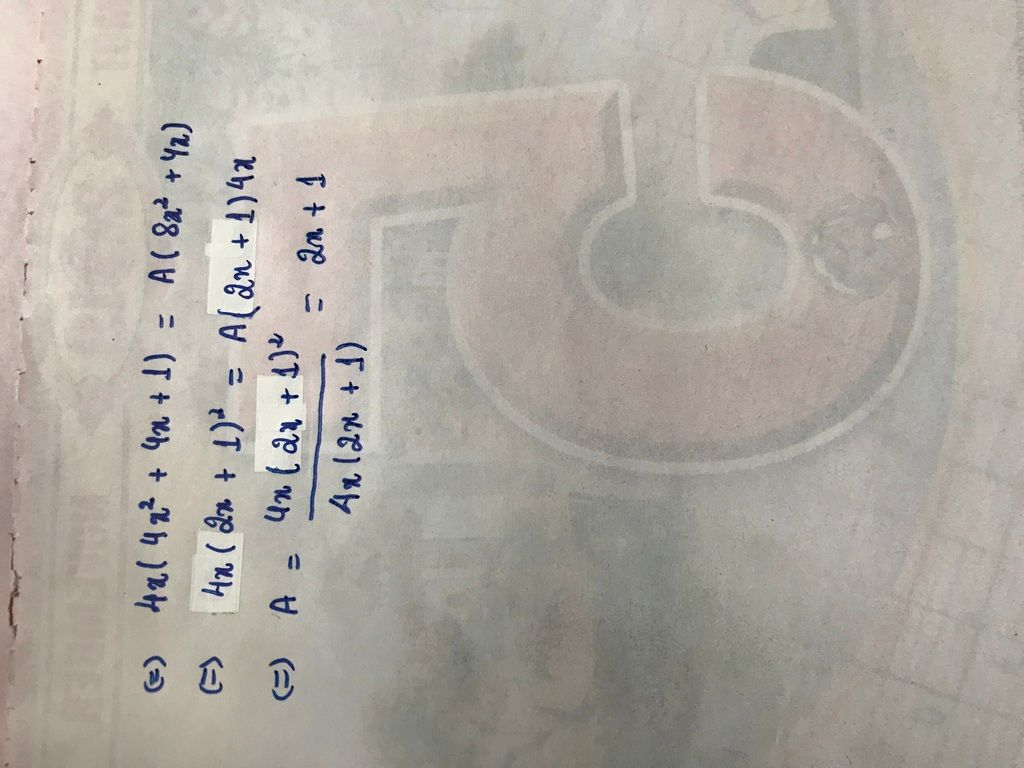 (=) 4x(4x² + 4x + 1) = A(8x² + 4x)
(=) 4x(2x + 1)² = A(2x + 1)4x
(=) A = 4x(2x + 1)² / 4x(2x + 1) = 2x + 1